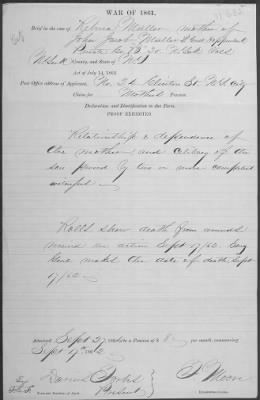 WAR OF 1861.
Brief in the case of Rebecca Muller mother of
John Jacob Muller
Private Co. 20 N. York Vols
N. York County, and State of N.Y.
Act of July 14, 1862.
Post Office address of Applicant, No. Clinton St. N.Y. City
Claim for Mother's Pension.
Declaration and Identification in due Form.
PROOF EXHIBITED.
Relationship & dependence of
the mother and celibacy of the
son proved by two or more competent
witnesses
Rolls show death from wounds
received in action Sept 17/62. Surg
Genl makes the date of death Sept
17/62
Admitted Sept 27, 186 to a Pension of $ 8
Sept 17th 1862
J. Moore
Examining Clerk.